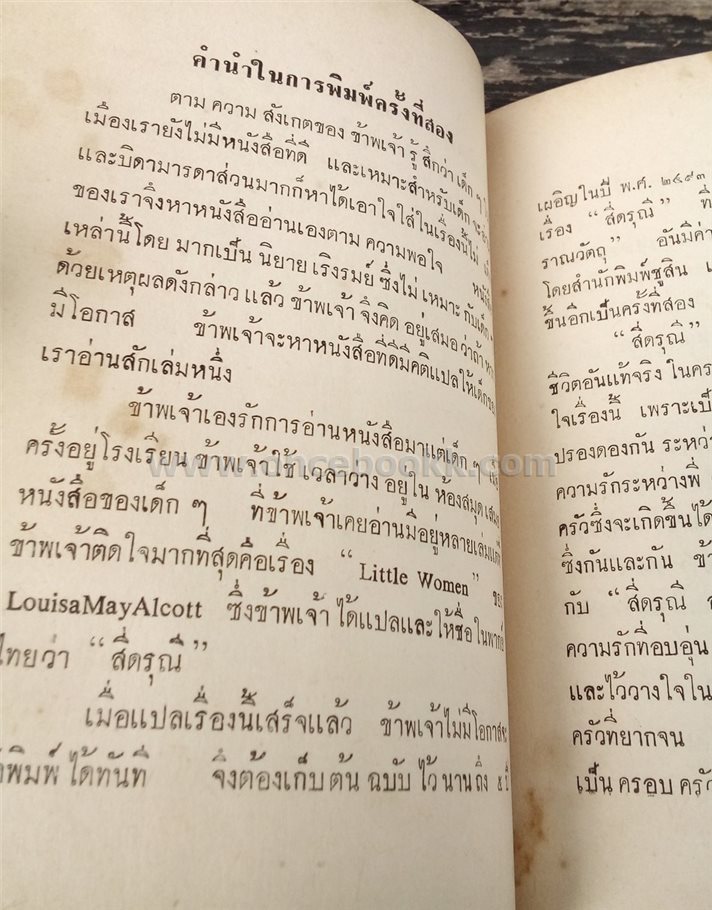 คำนำในการพิมพ์ครั้งที่สอง
ตาม ความ สังเกตของ ข้าพเจ้า รู้ สึกว่า เด็ก ๆ
เมืองเรายังไม่มีหนังสือที่ดี และเหมาะสำหรับเด็ก จะ
และบิดามารดาส่วนมากก็หาได้เอาใจใส่ในเรื่องนี้ไม่
ของเราจึงหาหนังสืออ่านเองตาม ความพอใจ
เหล่านี้โดย มากเป็น นิยาย เริงรมย์ ซึ่งไม่ เหมาะ กับเด็ก
ด้วยเหตุผลดังกล่าว แล้ว ข้าพเจ้า จึงคิด อยู่เสมอ ว่าถ้า
มีโอกาส ข้าพเจ้าจะหาหนังสือที่ดีมีคติแปลให้เด็กของ
เราอ่านสักเล่มหนึ่ง
ข้าพเจ้าเองรักการอ่านหนังสือมาแต่เด็ก ๆ
ครั้งอยู่โรงเรียน ข้าพเจ้าใช้ เวลาวาง อยู่ใน ห้องสมุด เสมอ
หนังสือของเด็ก ๆ ที่ข้าพเจ้าเคยอ่านมีอยู่หลายเล่ม
ข้าพเจ้าติดใจมากที่สุดคือเรื่อง “ Little Women ” ของ
LouisaMayAlcott ซึ่งข้าพเจ้า ได้แปลและให้ชื่อในพากย์
ไทยว่า “ สี่ดรุณี ”
เมื่อแปลเรื่องนี้เสร็จแล้ว ข้าพเจ้าไม่มีโอกาส
พิมพ์ ได้ทันที จึงต้องเก็บ ต้น ฉบับ ไว้ นาน ถึง ๕ ปี
เผอิญในปี พ.ศ. ๒๔๙๓
เรื่อง “ สี่ดรุณี ” ที่
ราณวัตถุ ” อันมีค่า
โดยสำนักพิมพ์ชูสิน
ขึ้นอีกเป็นครั้งที่สอง
“ สี่ดรุณี ”
ชีวิตอันแท้จริง ในคร
ใจเรื่องนี้ เพราะเป็
ปรองดองกัน ระหว่าง
ความรักระหว่างพี่
ครัวซึ่งจะเกิดขึ้นได้
ซึ่งกันและกัน ข้
กับ “ สี่ดรุณี
ความรักที่อบอุ่น
และไว้วางใจใน
ครัวที่ยากจน
เป็น ครอบ ครัว
www.oncebookk.com